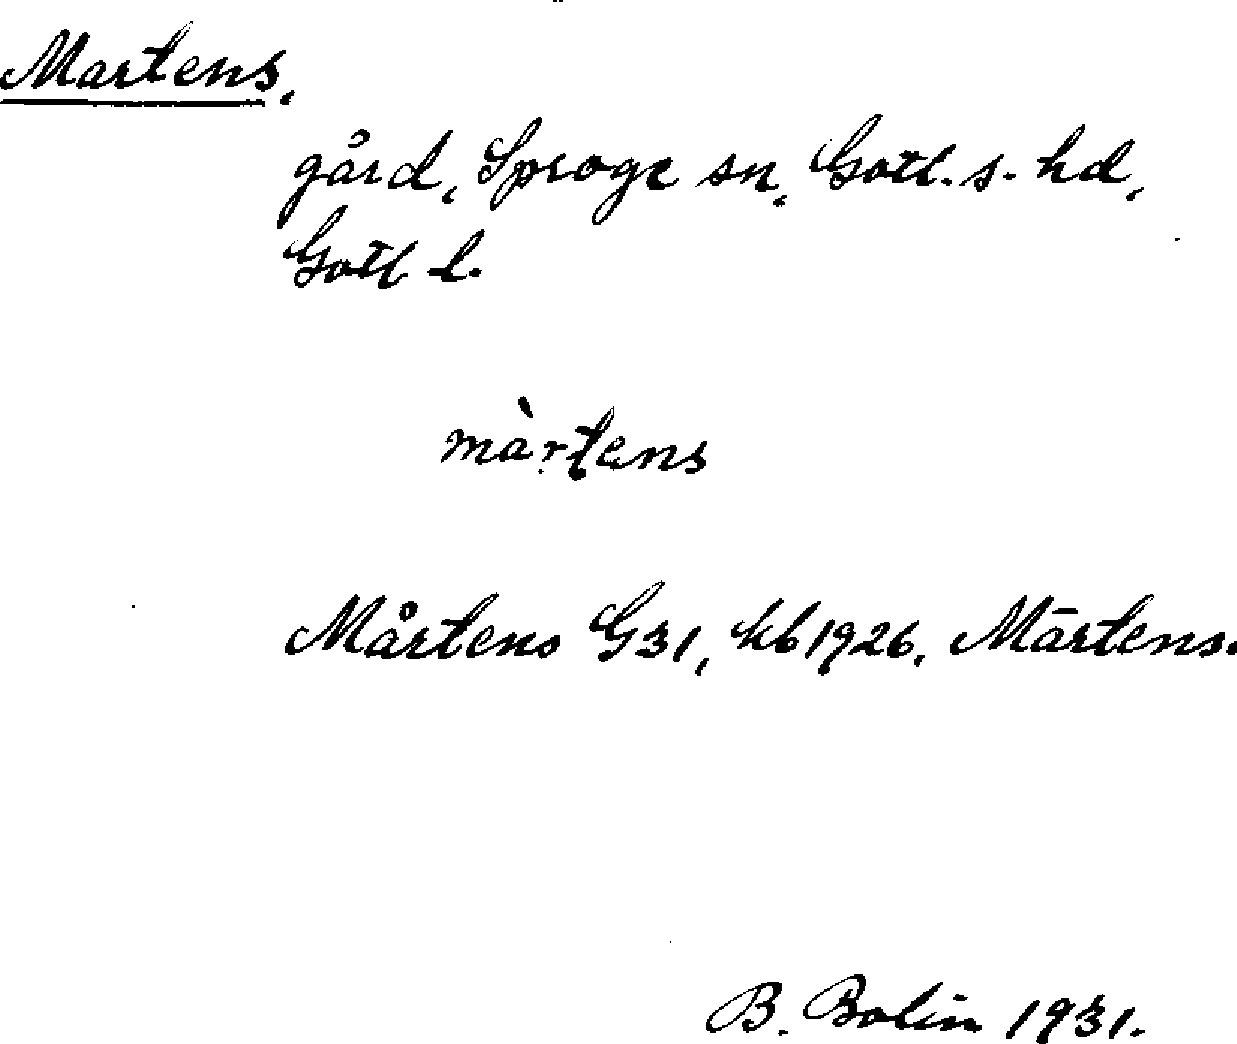 Martens,
gård, Sproge sn, Gotl. s. hd,
Gotl l.
màrtens
Mårtens G31, kb 1926, Mārtens.
B. Bolin 1931.